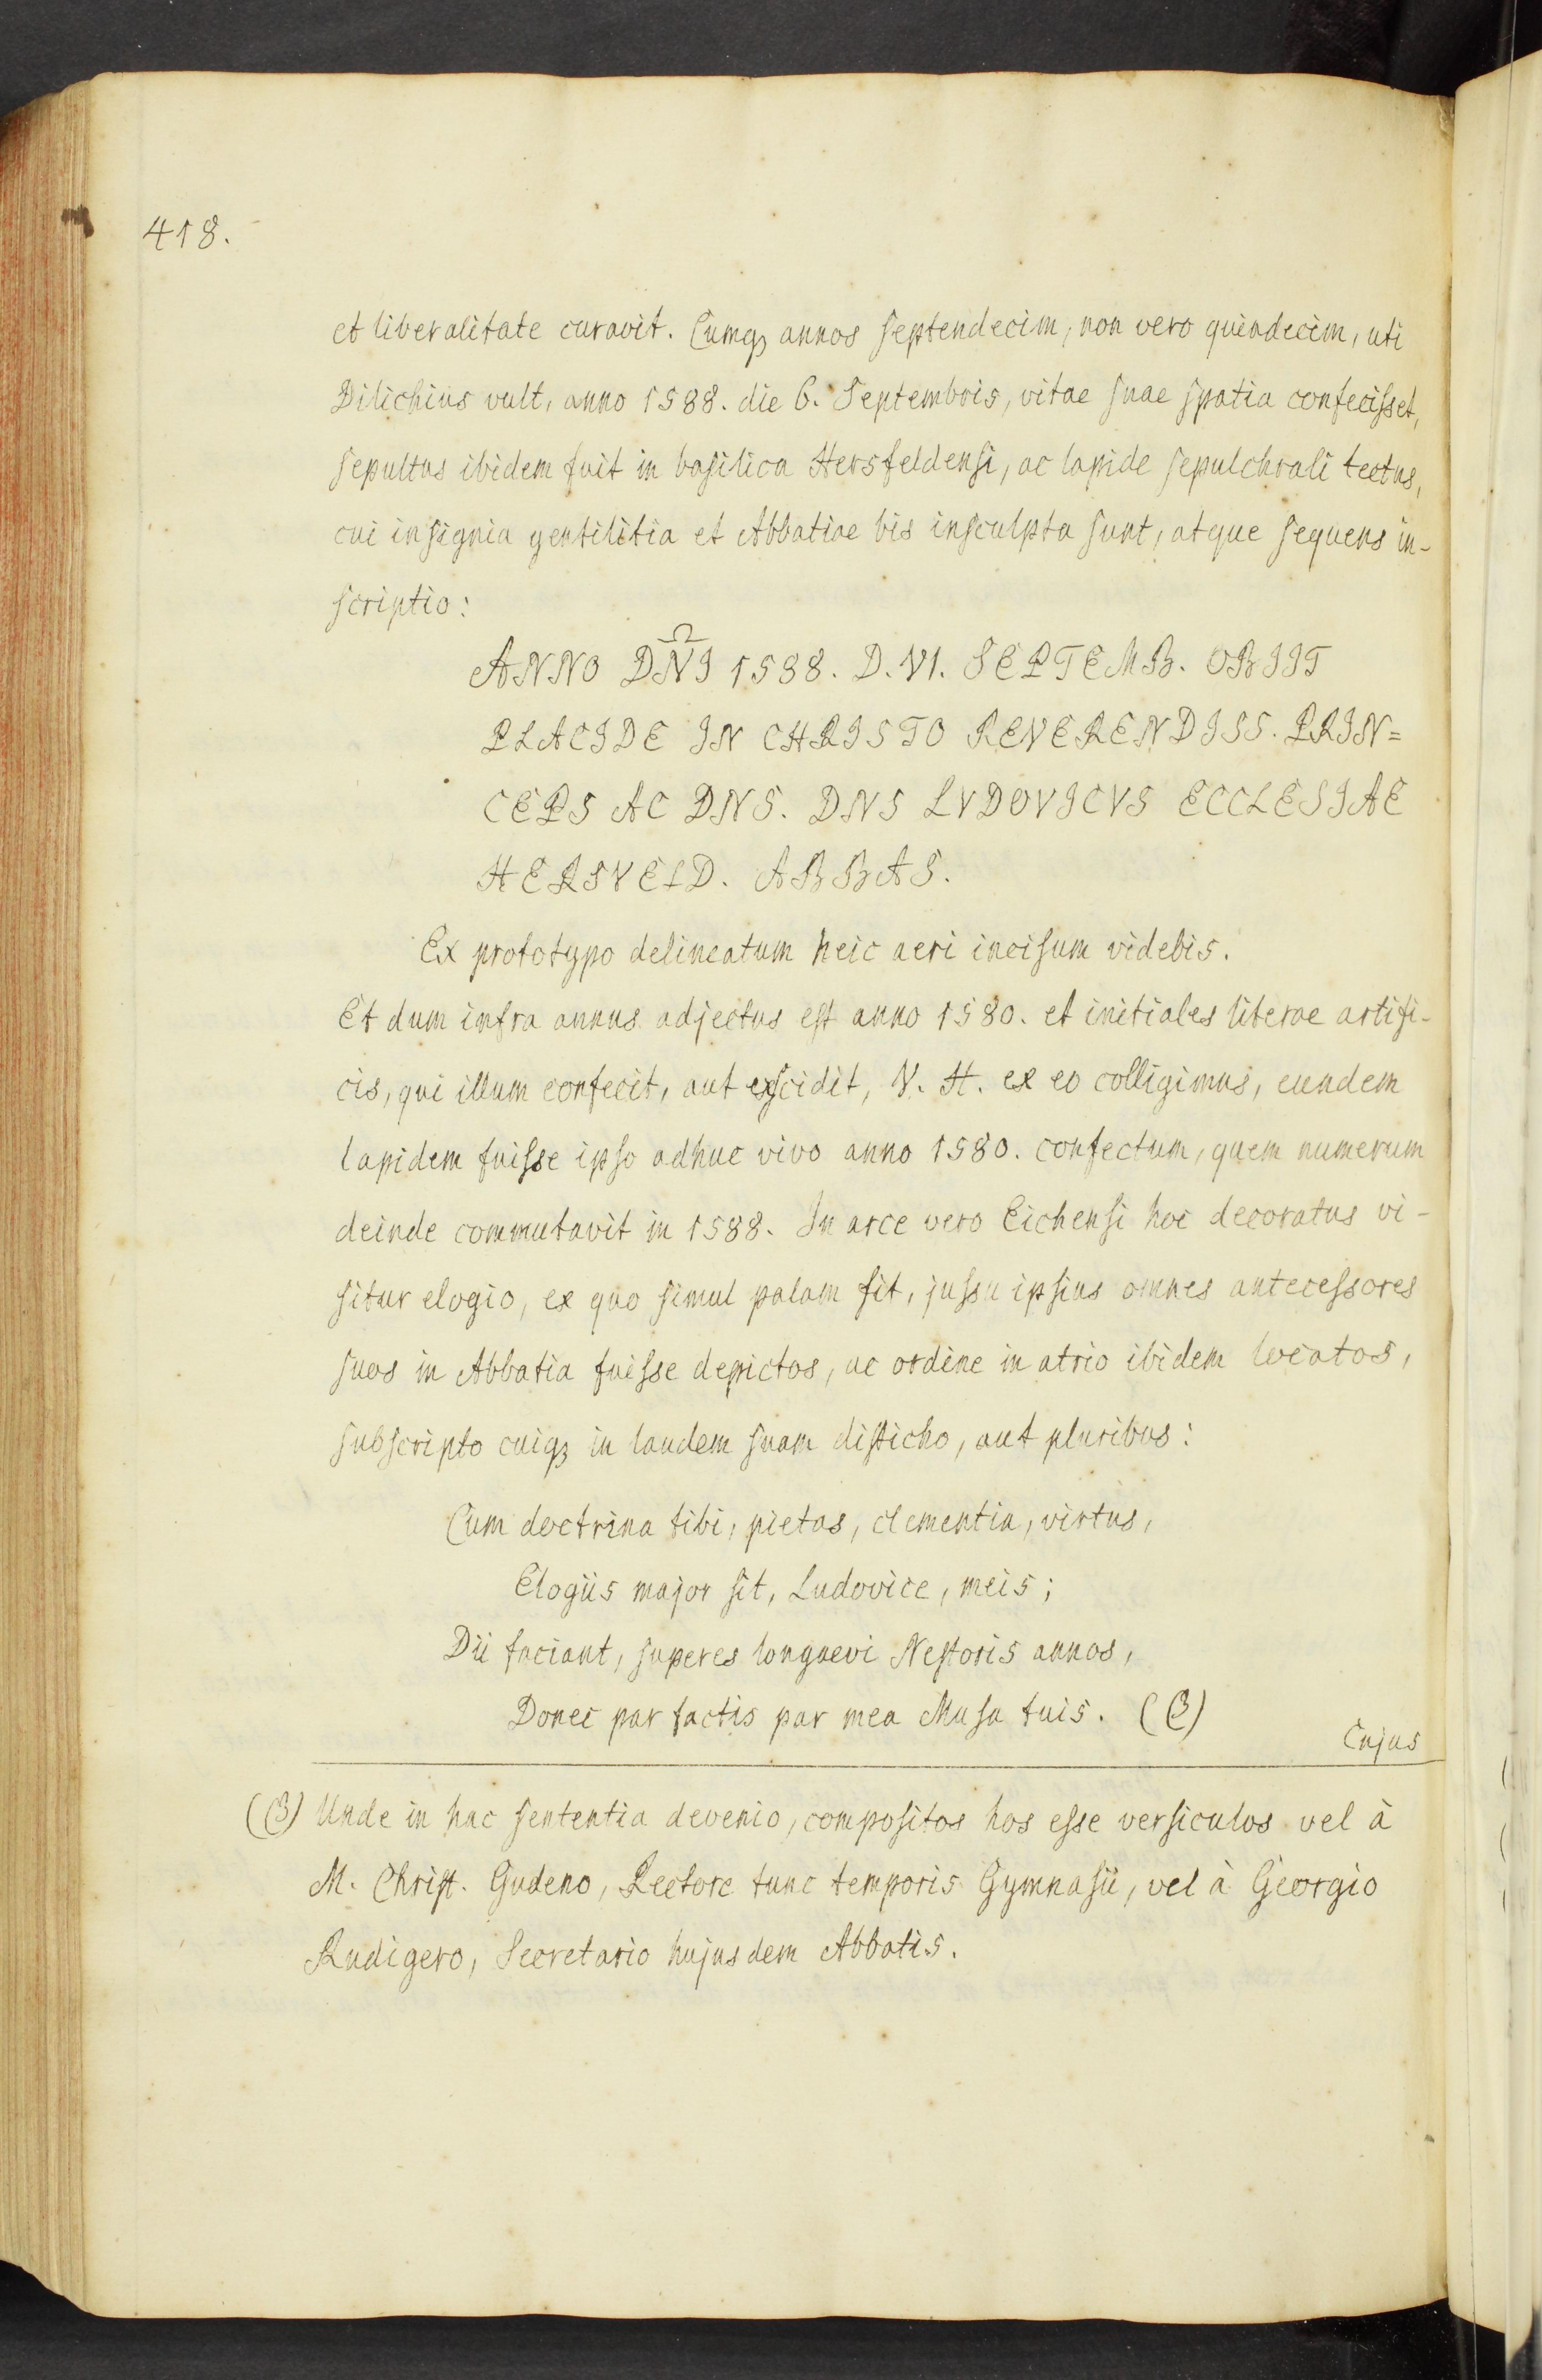 418.
et liberalitate curavit. Cumqꝫ annos septendecim, non vero quindecim, uti
Dilichius vult, anno 1588. die 6. Septembris, vitae suae spatia confecisset,
sepultus ibidem fuit in basilica Hersfeldensi, ac lapide sepulchrali tectus,
cui insignia gentilitia et Abbatiae bis insculpta sunt, atque sequens in-
scriptio:
ANNO DNI 1588. D. VI. SEPTEMB. OBIIT
PLACIDE IN CHRISTO REVERENDISS. PRIN=
CEPS AC DNS. DNS LVDOVICVS ECCLESIAE
HERSVELD. ABBAS.
Ex prototypo delineatum heic aeri incisum videbis.
Et dum infra annus adjectus est anno 1580. et initiales literae artifi-
cis, qui illum confecit, aut exscidit, V. H. ex eo colligimus, eundem
lapidem fuisse ipso adhuc vivo anno 1580. confectum, quem numerum
deinde commutavit in 1588. In arce vero Eichensi hoc decoratus vi-
situr elogio, ex quo simul palam fit, jussu ipsius omnes antecessores
suos in Abbatia fuisse depictos, ac ordine in atrio ibidem locatos,
subscripto cuiqꝫ in laudem suam disticho, aut pluribus:
Cum doctrina tibi, pietas, clementia, virtus,
Elogiis major sit, Ludovice, meis;
Dii faciant, superes longaevi Nestoris annos,
Donec par factis par mea Musa tuis. (B)
Cujus
(B) Unde in hac sententia devenio, compositos hos esse versiculos vel à
M. Christ. Gudeno, Rectore tunc temporis Gymnasii, vel à Georgio
Rudigero, Secretario hujusdem Abbatis.